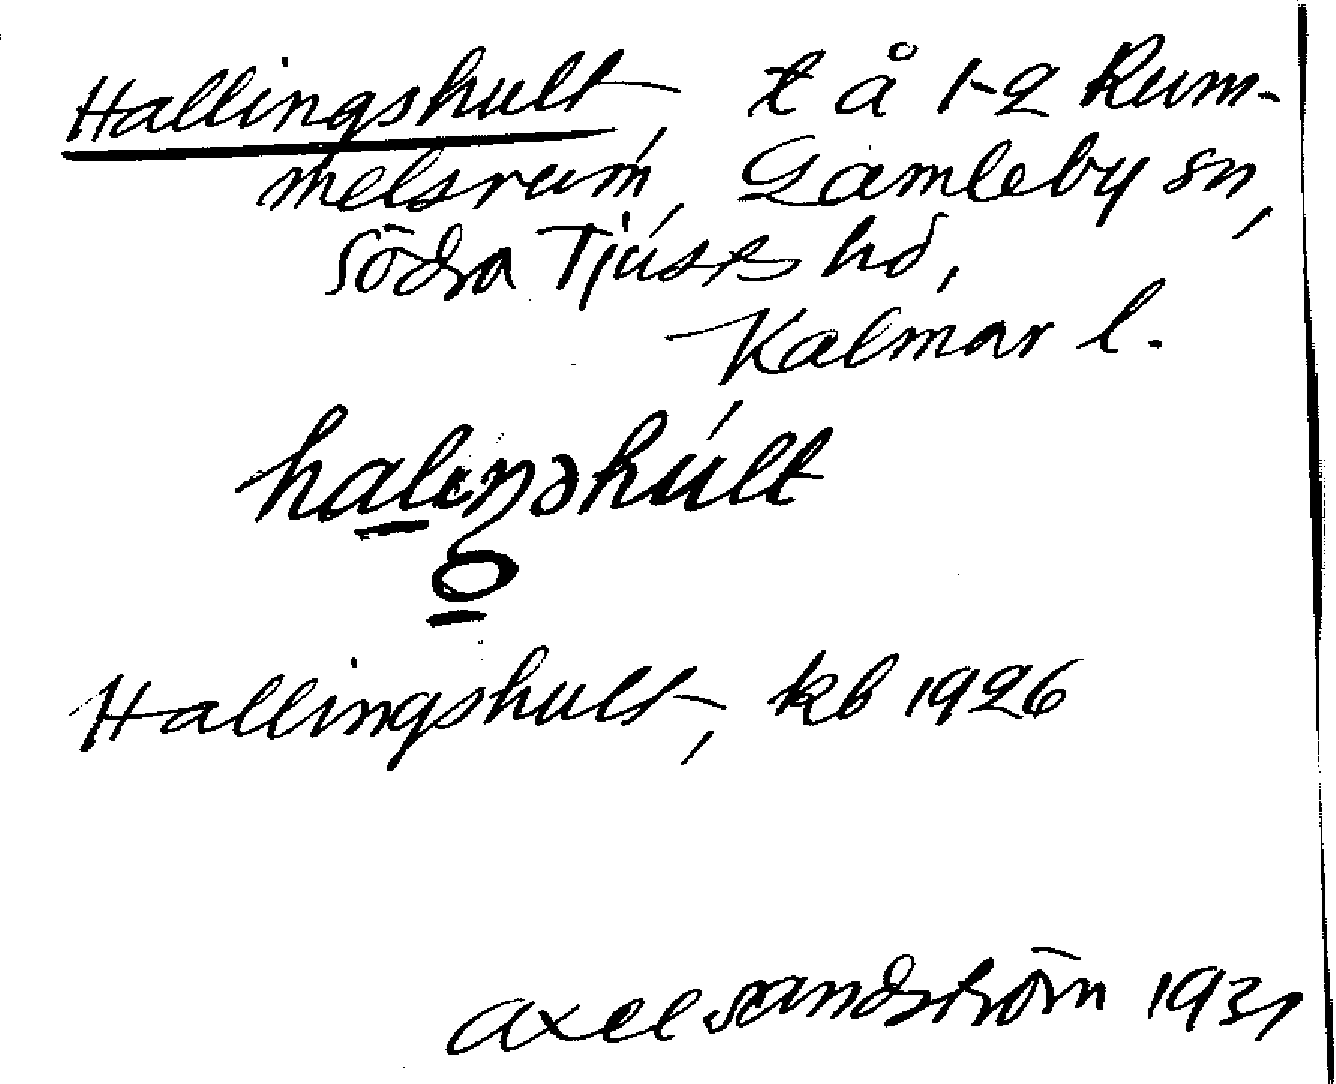 Hallingshult, t å 1-2 Rum-
melsrum, Gamleby sn,
södra Tjusts hd,
Kalmar l.
Hallingshult, kb 1926
Axel Sandström 1931